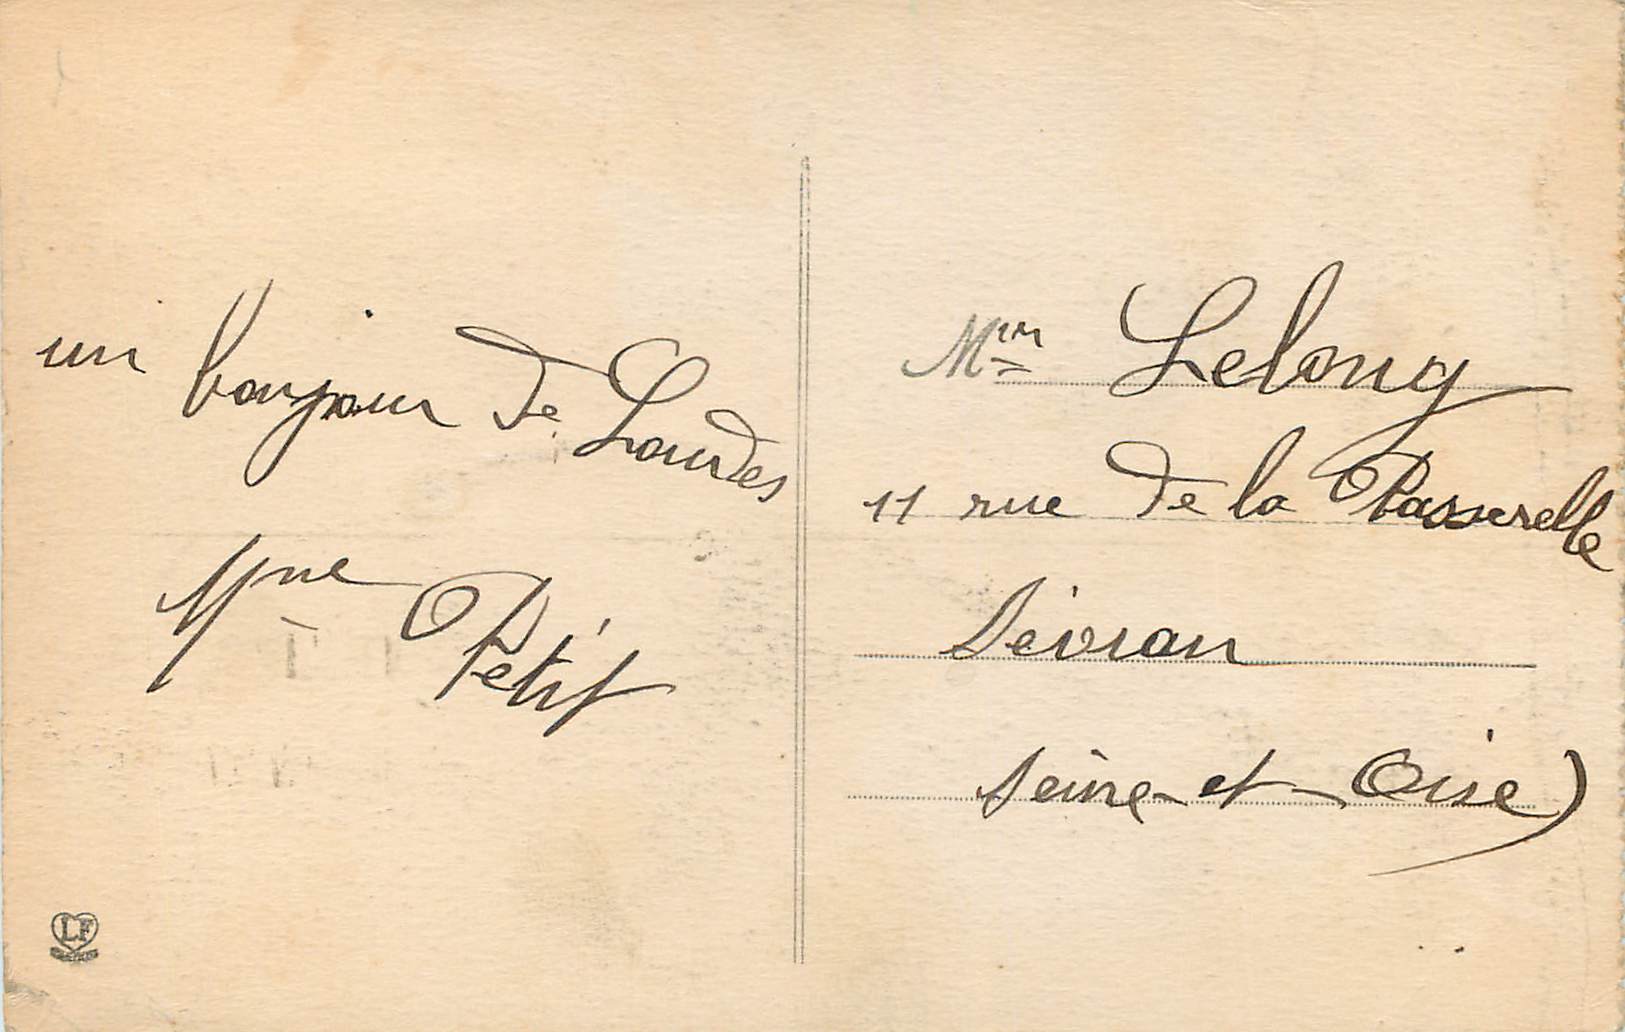 un bonjour de Lourdes
Mme Petit
LF
Mme Lelong
11 rue de la Passerelle
Sevran
Seine-et-Oise)